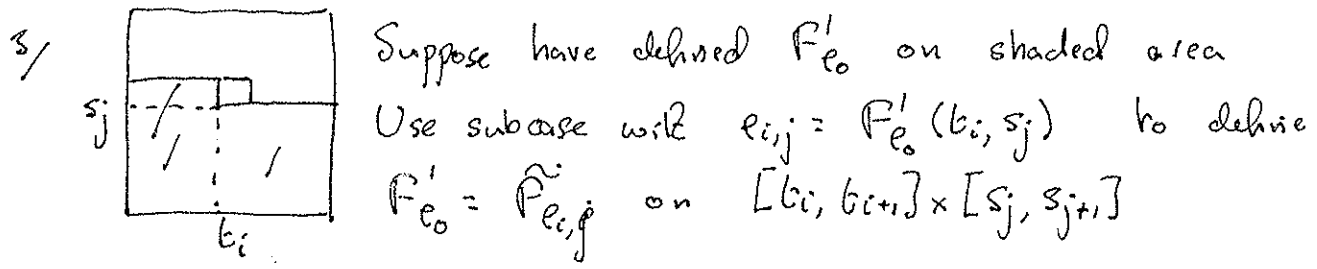 3/ Suppose have defined F'_{e_0} on shaded area
s_j Use subcase with e_{i,j} = F'_{e_0}(t_i, s_j) to define
F'_{e_0} = \tilde{F}_{e_{i,j}} on [t_i, t_{i+1}] × [s_j, s_{j+1}]
t_i